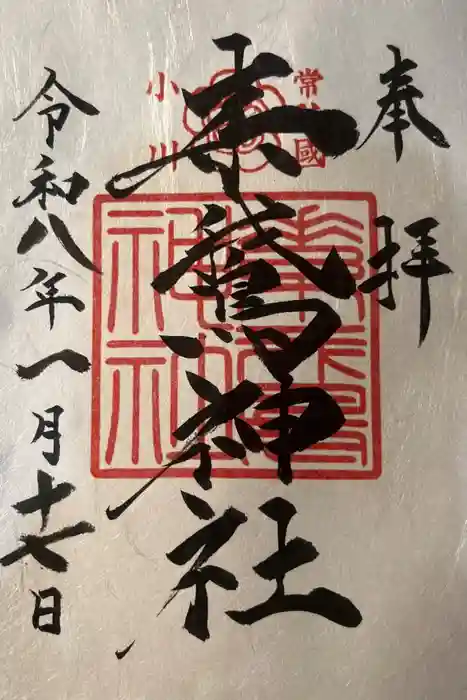 奉拝
常陸國
小川
素鵞神社
令和八年一月十七日